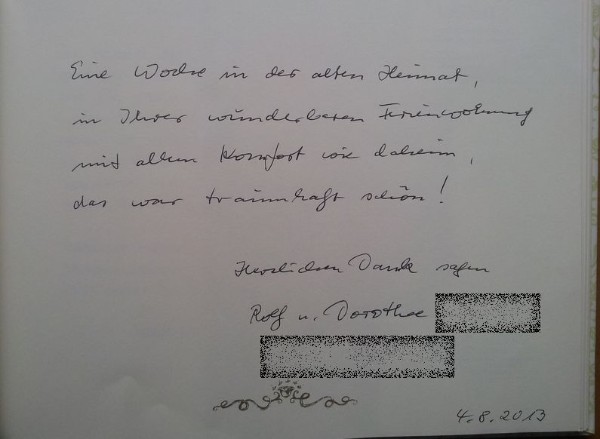 Eine Woche in der alten Heimat,
in Ihrer wunderbaren Ferienwohnung
mit allem Komfort wie daheim,
das war traumhaft schön!
Herzlichen Dank sagen
Rolf u. Dorothee
4.8.2013